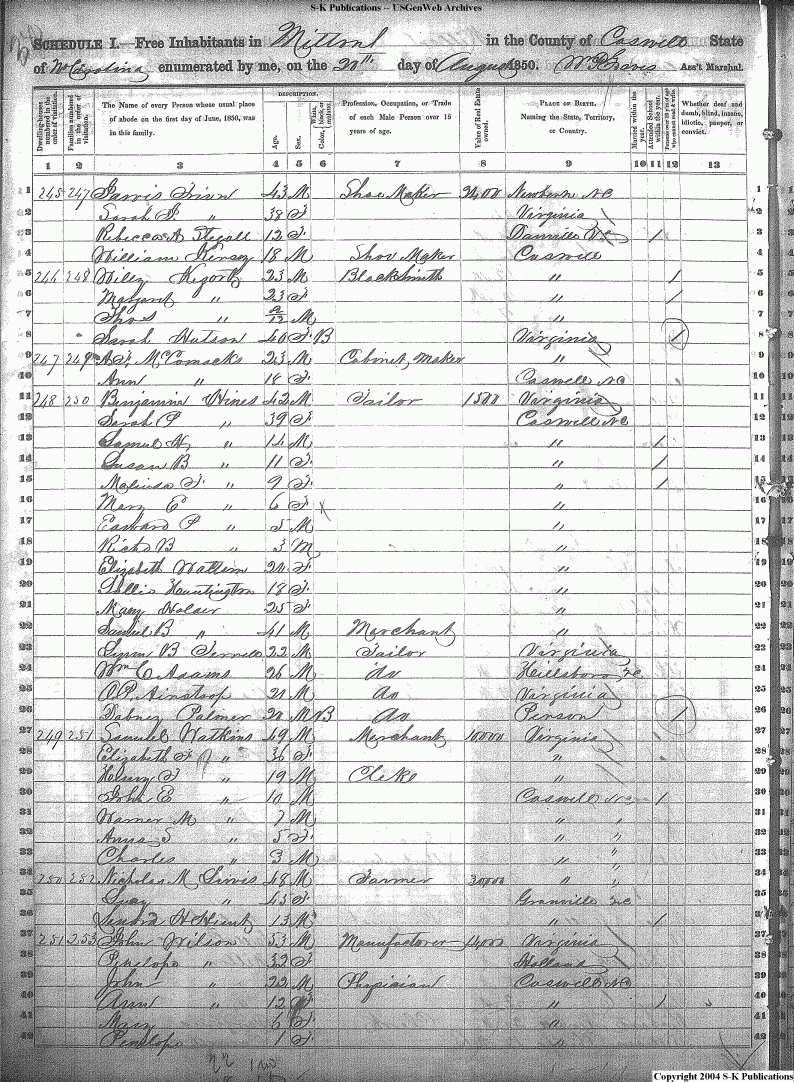 S-K Publications -- USGenWeb Archives
SCHEDULE I.—Free Inhabitants in Milton in the County of Caswell State
of N Carolina enumerated by me, on the 20th day of August 1850. Ass't Marshal.
Dwelling-houses numbered in the order of visitation.
Families numbered in the order of visitation.
The Name of every Person whose usual place of abode on the first day of June, 1850, was in this family.
DESCRIPTION.
Age.
Sex.
Color, White, black, or mulatto.
Profession, Occupation, or Trade of each Male Person over 15 years of age.
Value of Real Estate owned.
PLACE OF BIRTH.
Naming the State, Territory, or Country.
Married within the year.
Attended School within the year.
Persons over 20 y'rs of age who cannot read & write.
Whether deaf and dumb, blind, insane, idiotic, pauper, or convict.
1 2 3 4 5 6 7 8 9 10 11 12 13
1 245 247 43 M Shoe Maker Newbern NC 1
2 Sarah " 38 F Virginia 2
3 Rebecca A 12 F Danville Va / 3
4 William Kersey 18 M Shoe Maker Caswell 4
5 246 248 Wiley 23 M Blacksmith " / 5
6 Margaret " 23 F " / 6
7 Thos " M " 7
8 Sarah Hutson 40 F B Virginia / 8
9 247 249 McComacks 23 M Cabinet Maker " 9
10 Ann " 18 F Caswell NC 10
11 248 250 Benjamin Hines 42 M Tailor 1500 Virginia 11
12 Sarah P " 39 F Caswell NC 12
13 Samuel " 14 M " / 13
14 Susan B " 11 F " / 14
15 Malinda F " 9 F " / 15
16 Mary E " 6 F " 16
17 Edward P " 5 M " 17
18 Richd B " 3 M " 18
19 Elizabeth 20 F " 19
20 Sallie Huntington 18 F " 20
21 Mary Holder 25 F " 21
22 Samuel B " 41 M Merchant " 22
23 B Terrell 22 M Tailor Virginia 23
24 Wm C Adams 26 M do Hillsboro NC 24
25 21 M do Virginia 25
26 Dabney Palmer 20 M B do Person / 26
27 249 251 Samuel Watkins 49 M Merchant 10000 Virginia 27
28 Elizabeth F " 36 F " 28
29 Henry F " 19 M Clerk " 29
30 John E " 10 M Caswell NC / 30
31 Warner M " 7 M " " 31
32 Anna S " 5 F " " 32
33 Charles " 3 M " " 33
34 250 252 Nicholas M Lewis 48 M Farmer 3000 " " 34
35 Lucy " 45 F Granville NC 35
36 13 M " / 36
37 251 253 John Wilson 53 M Manufacturer 14000 Virginia 37
38 Penelope " 32 F Holland 38
39 John " 22 M Phipician Caswell NC 39
40 Ann " 12 F " / 40
41 Mary " 6 F " 41
42 Penelope 1 F " 42
Copyright 2004 S-K Publications